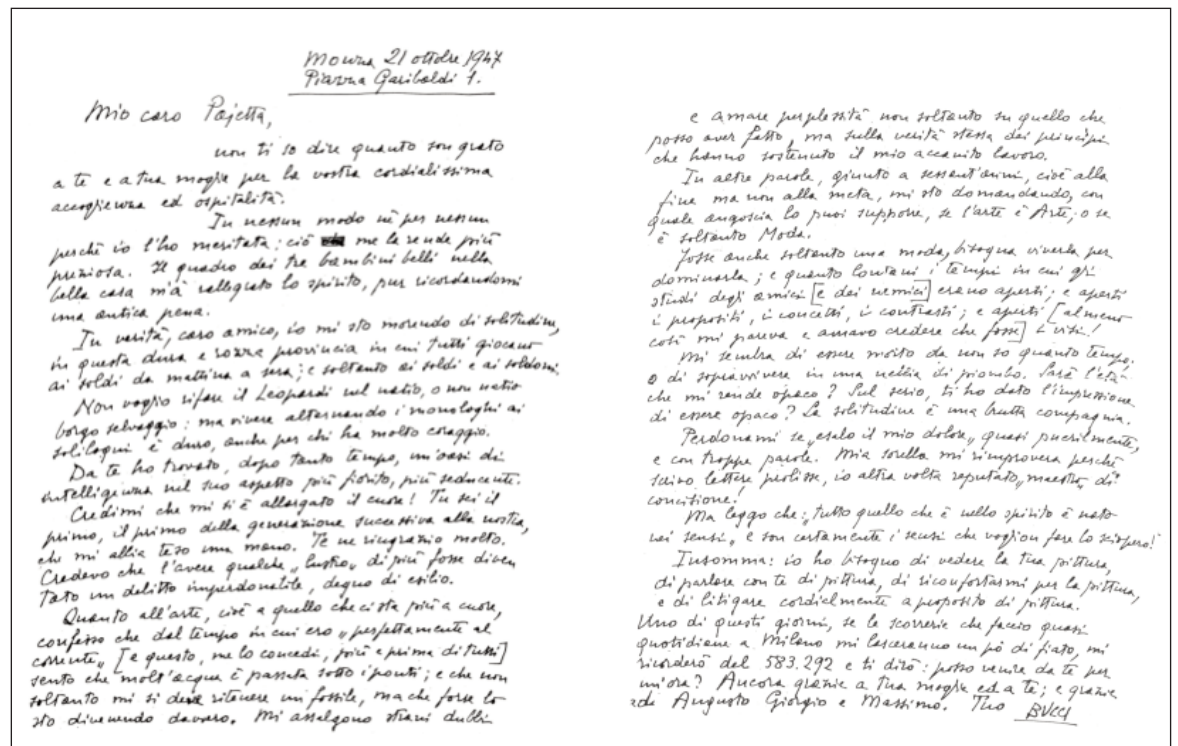 Monza 21 ottobre 1947
Piazza Garibaldi 1.
Mio caro Pajetta,
non ti so dire quanto son grato
a te e a tua moglie per la vostra cordialissima
accoglienza ed ospitalità.
In nessun modo nè per nessun
perchè io l'ho meritata; ciò me la rende più
preziosa. Il quadro dei tre bambini belli nella
bella casa m'à rallegrato lo spirito, pur ricordandomi
una antica pena.
In verità, caro amico, io mi sto morendo di solitudine,
in questa dura e rozza provincia in cui tutti giocano
ai soldi da mattina a sera; e soltanto ai soldi e ai soldoni.
Non voglio rifare il Leopardi nel natio, o non natio
borgo selvaggio: ma vivere alternando i monologhi ai
soliloqui è duro, anche per chi ha molto coraggio.
Da te ho trovato, dopo tanto tempo, un'oasi di
intelligenza nel suo aspetto più fiorito, più seducente.
Credimi che mi si è allargato il cuore! Tu sei il
primo, il primo della generazione successiva alla nostra,
che mi abbia teso una mano. Te ne ringrazio molto.
Credevo che l'avere qualche „lustro„ di più fosse diven
tato un delitto imperdonabile, degno di esilio.
Quanto all'arte, cioè a quello che ci sta più a cuore,
confesso che dal tempo in cui ero „perfettamente al
corrente„ [e questo, me lo concedi, più e prima di tutti]
sento che molt'acqua è passata sotto i ponti; e che non
soltanto mi si deve ritenere un fossile, ma che forse lo
sto divenendo davvero. Mi assalgono strani dubbi
e amare perplessità non soltanto su quello che
posso aver fatto, ma sulla verità stessa dei principi
che hanno sostenuto il mio accanito lavoro.
In altre parole, giunto a sessant'anni, cioè alla
fine ma non alla meta, mi sto domandando, con
quale angoscia lo puoi supporre, se l'arte è Arte; o se
è soltanto Moda.
Fosse anche soltanto una moda, bisogna viverla per
dominarla; e quanto lontani i tempi in cui gli
studi degli amici [e dei nemici] erano aperti; e aperti
i propositi, i concetti, i contrasti; e aperti [almeno
così mi pareva e amavo credere che fosse] i visi!
Mi sembra di essere morto da non so quanto tempo,
o di sopravvivere in una nebbia di piombo. Sarà l'età
che mi rende opaco? Sul serio, ti ho dato l'impressione
di essere opaco? La solitudine è una brutta compagnia.
Perdonami se „esalo il mio dolore„ quasi puerilmente,
e con troppe parole. Mia sorella mi rimprovera perchè
scrivo lettere prolisse, io altra volta reputato „maestro„ di
concisione!
Ma leggo che: „tutto quello che è nello spirito è nato
nei sensi„ e son certamente i sensi che voglion fare lo sciopero!
Insomma: io ho bisogno di vedere la tua pittura,
di parlare con te di pittura, di riconfortarmi per la pittura,
e di litigare cordialmente a proposito di pittura.
Uno di questi giorni, se le scorrerie che faccio quasi
quotidiane a Milano mi lasceranno un pò di fiato, mi
ricorderò del 583.292 e ti dirò: posso venire da te per
un'ora? Ancora grazie a tua moglie ed a te; e grazie
di Augusto Giorgio e Massimo. Tuo BUCCI